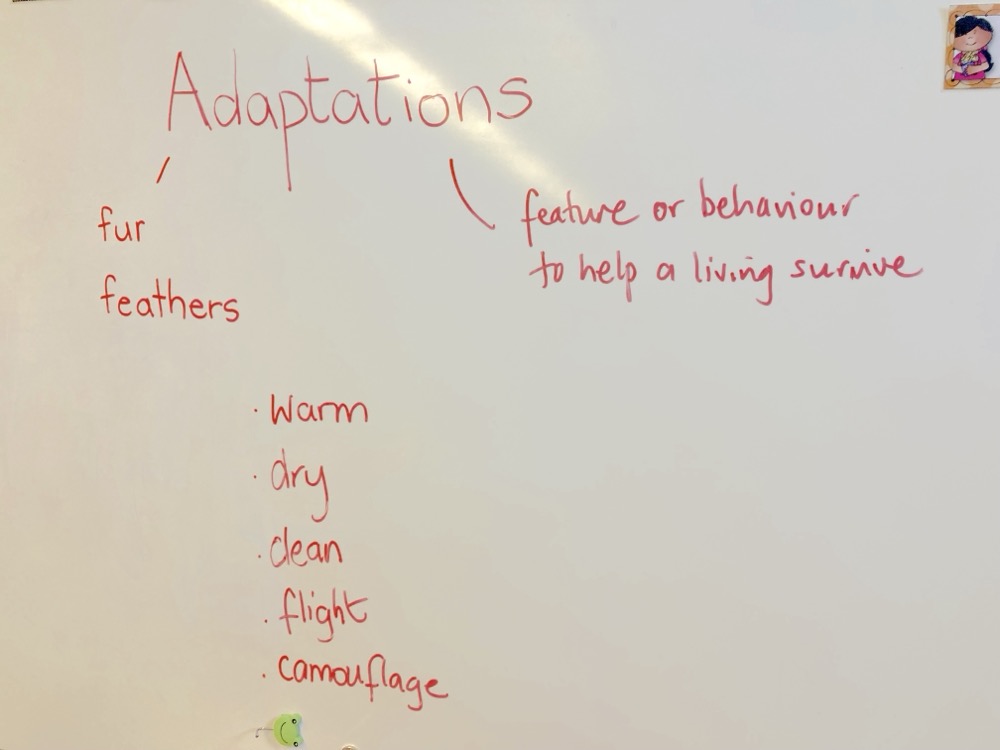 Adaptations
fur
feathers
feature or behaviour
to help a living survive
· Warm
· dry
· clean
· flight
· camouflage